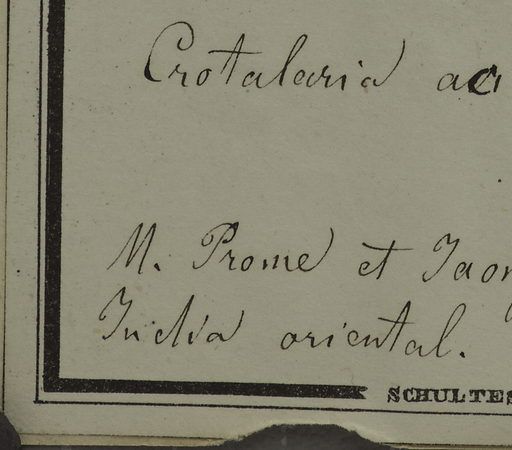 Crotalaria ac
M. Prome et Taon
India oriental.
SCHULTES